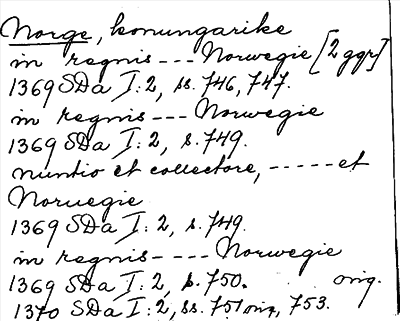 Norge, konungarike
in regnis --- Norwegie [2 ggr]
1369 SDa I:2, ss. 746, 747.
in regnis --- Norwegie
1369 SDa I:2, s. 749.
nuntio et collectore, ----- et
Noruegie
1369 SDa I:2, s. 749.
in regnis ---- Norwegie
1369 SDa I:2, s. 750. orig.
1370 SDa I:2, ss. 751 orig, 753.